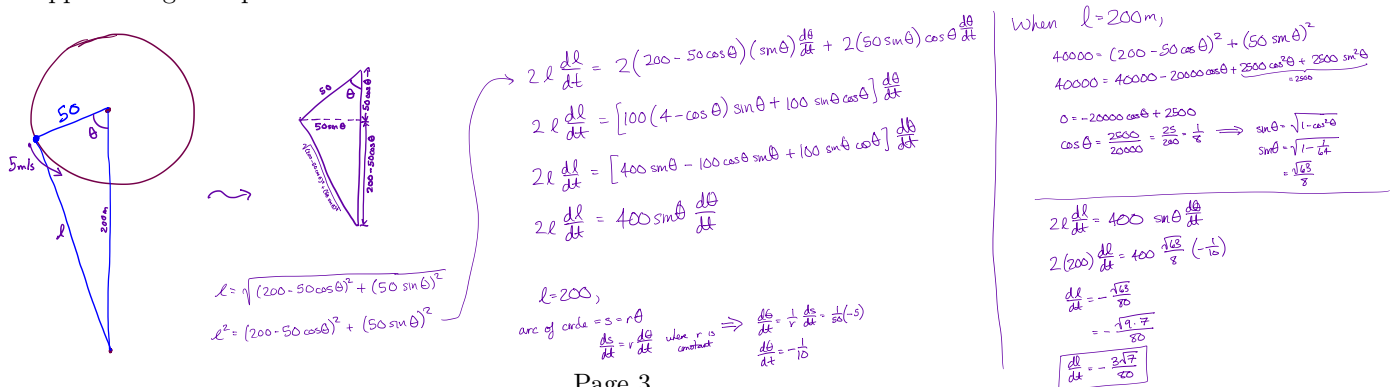 50
θ
5m/s
l
200m
50
θ
50cosθ
50sinθ
200-50cosθ
l = √((200-50cosθ)² + (50 sinθ)²)
l² = (200-50cosθ)² + (50 sinθ)²
2l dl/dt = 2(200-50cosθ)(sinθ) dθ/dt + 2(50sinθ) cosθ dθ/dt
2l dl/dt = [100(4-cosθ) sinθ + 100 sinθ cosθ] dθ/dt
2l dl/dt = [400 sinθ - 100 cosθ sinθ + 100 sinθ cosθ] dθ/dt
2l dl/dt = 400 sinθ dθ/dt
l=200,
arc of circle = s = rθ
ds/dt = r dθ/dt where r is constant ⇒ dθ/dt = 1/r ds/dt = 1/50 (-5)
dθ/dt = -1/10
When l=200m,
40000 = (200-50cosθ)² + (50 sinθ)²
40000 = 40000 - 20000cosθ + 2500 cos²θ + 2500 sin²θ
=2500
0 = -20000cosθ + 2500
cosθ = 2500/20000 = 25/200 = 1/8 ⇒ sinθ = √(1-cos²θ)
sinθ = √(1-1/64)
= √63/8
2l dl/dt = 400 sinθ dθ/dt
2(200) dl/dt = 400 √63/8 (-1/10)
dl/dt = -√63/80
= -√(9·7)/80
dl/dt = -3√7/80
Page 3